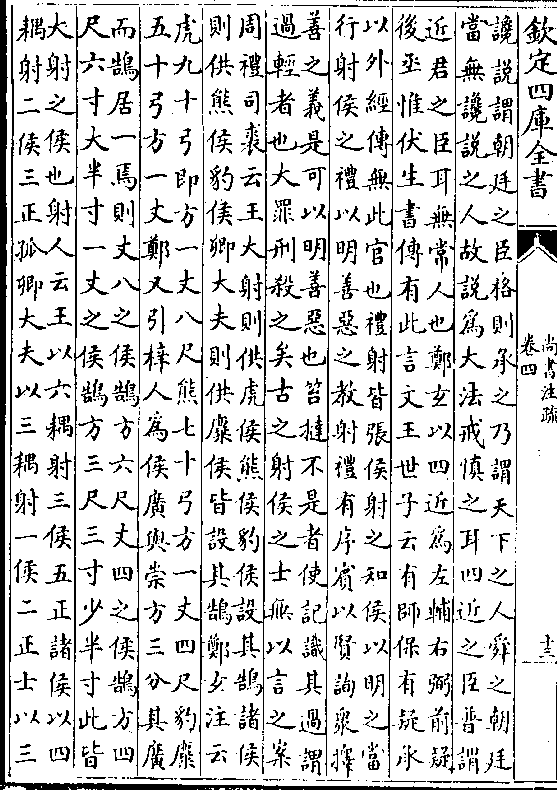 欽定四庫全書
尚書注疏
卷四
十三
讒說謂朝廷之臣格則承之乃謂天下之人舜之朝廷
當無讒說之人故說爲大法戒慎之耳四近之臣普謂
近君之臣耳無常人也鄭玄以四近爲左輔右弼前疑
後丞惟伏生書傳有此言文王世子云有師保有疑丞
以外經傳無此官也禮射皆張侯射之知侯以明之當
行射侯之禮以明善惡之教射禮有序賓以賢詢衆擇
善之義是可以明善惡也笞撻不是者使記識其過謂
過輕者也大罪刑殺之矣古之射侯之士無以言之案
周禮司裘云王大射則供虎侯熊侯豹侯設其鵠諸侯
則供熊侯豹侯卿大夫則供麋侯皆設其鵠鄭玄注云
虎九十弓即方一丈八尺熊七十弓方一丈四尺豹麋
五十弓方一丈鄭又引梓人爲侯廣與崇方三分其廣
而鵠居一焉則丈八之侯鵠方六尺丈四之侯鵠方四
尺六寸大半寸一丈之侯鵠方三尺三寸少半寸此皆
大射之侯也射人云王以六耦射三侯五正諸侯以四
耦射二侯三正孤卿大夫以三耦射一侯二正士以三